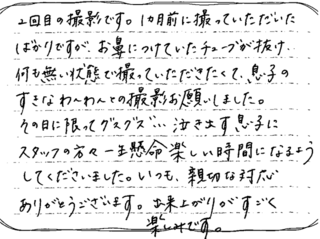 2回目の撮影です。1カ月前に撮っていただいた
ばかりですが、お鼻につけていたチューブが抜け、
何も無い状態で撮っていただきたくて、息子の
すきなわ〜わんとの撮影お願いしました。
その日に限ってグズグズ…泣き出す息子に
スタッフの方々一生懸命楽しい時間になるよう
してくださいました。いつも、親切な対応
ありがとうございます。出来上がりがすごく
楽しみです。